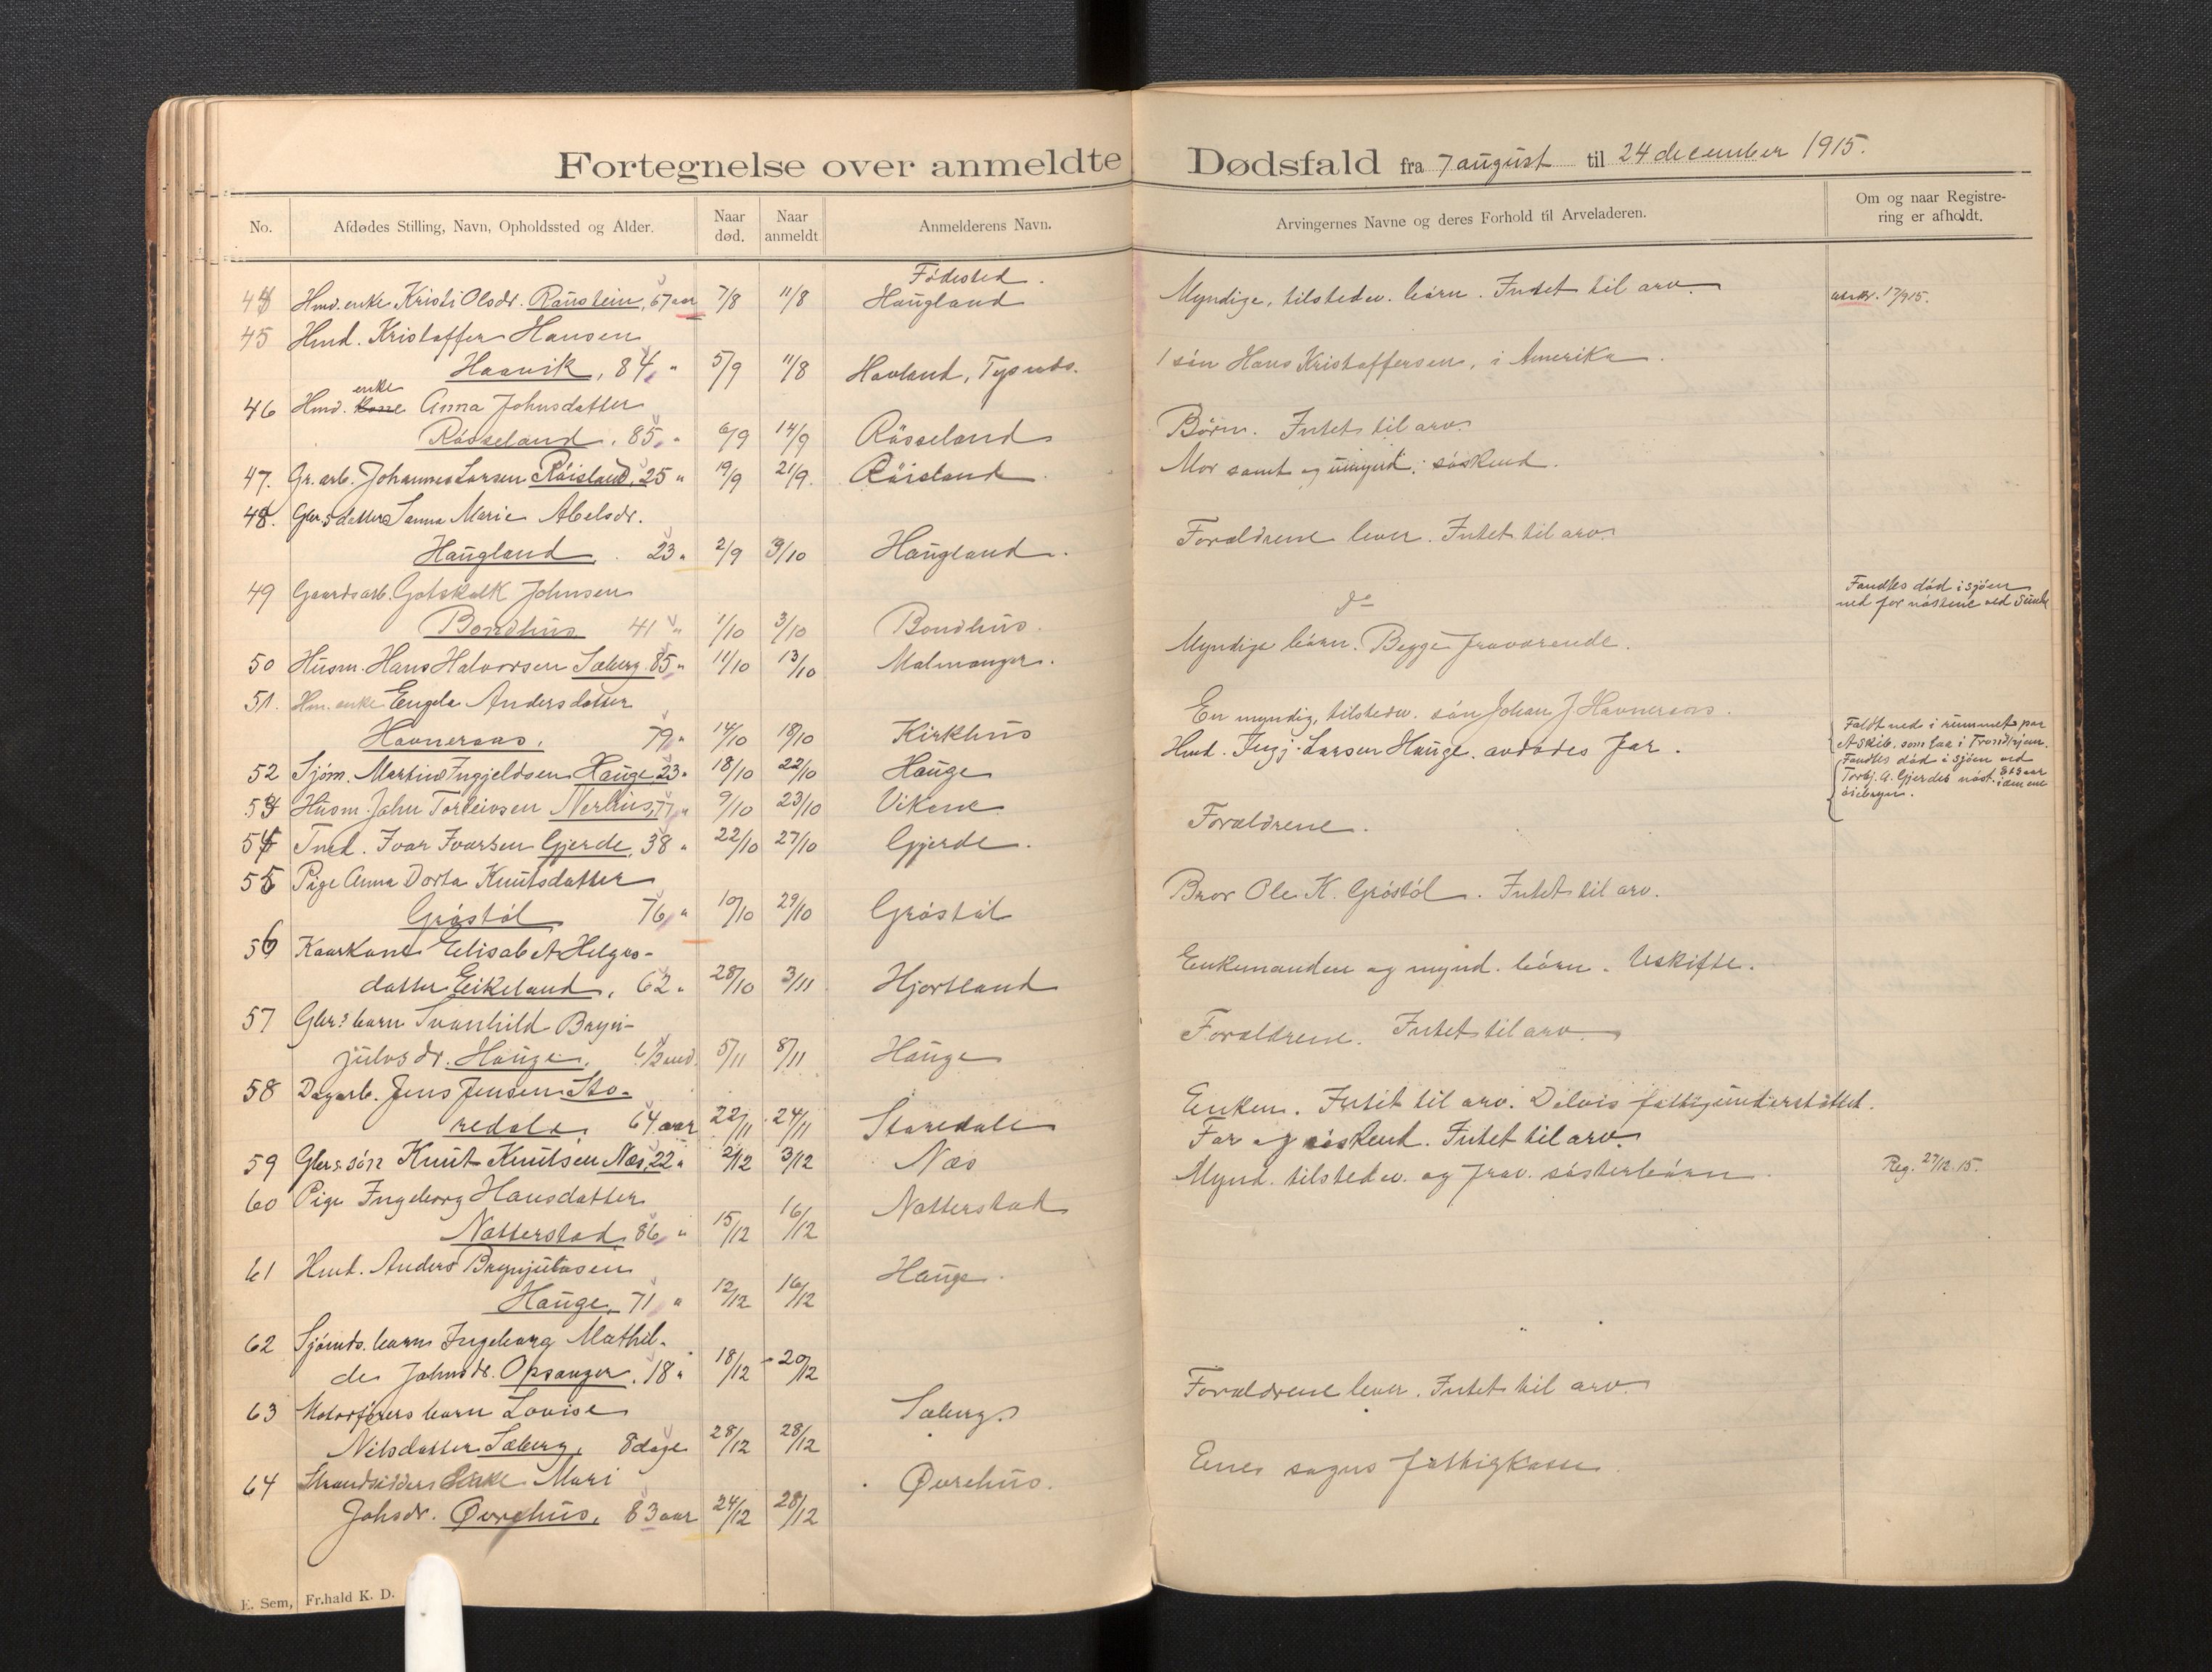 Fortegnelse over anmeldte Dødsfald fra 7 august til 24 december 1915.
No. Afdødes Stilling, Navn, Opholdssted og Alder. Naar død. Naar anmeldt Anmelderens Navn. Arvingernes Navne og deres Forhold til Arveladeren. Om og naar Registrering er afholdt.
Fødested.
44 Hmd. enke Kristi Olsdr. Raustein, 67 aar 7/8 11/8 Haugland Myndige, tilstedev. børn. Intet til arv. 17/9 15.
45 Hmd. Kristaffer Hansen
Haavik, 84 " 5/9 11/8 Hovland, Tysnes. 1 søn Hans Kristaffersen, i Amerika.
46 Hmd. enke Anna Johnsdatter
Røsseland, 85 " 6/9 14/9 Røsseland Børn. Intet til arv.
47. Gr. arb. Johannes Larsen Røisland, 25 " 19/9 21/9. Røisland Mor samt og umynd. søskend.
48. Gbr.s datter Sanna Marie Abelsdr.
Haugland. 23 " 2/9 3/10 Haugland. Forældrene lever. Intet til arv.
49 Gaardsarb. Gotskalk Johnsen
Bondhus 41 " 1/10 3/10 Bondhus. do Fandtes død i sjøen
ned for nøstene ved Sunde
50 Husm. Hans Halvorsen Sæberg 85 " 11/10 13/10 Malmanger. Myndige børn. Begge fraværende.
51. Hm. enke Engela Andersdatter
Havneraas, 79 " 14/10 18/10 Kirkhus En myndig, tilstedev. søn Johan J Havneraas.
52 Sjøm. Martin Ingjeldsen Hauge 23 " 18/10 22/10 Hauge Hmd. Ingj. Larsen Hauge. avdødes far. Faldt ned i rummet paa
et skib, som laa i Trondhjem.
53 Husm. John Torleivsen Nerhus, 77 " 9/10 23/10 Vikene Fandtes død i sjøen ved
Torbj. G. Gjerdes nøst.
54 Tmd. Ivar Ivarsen Gjerde, 38 " 22/10 27/10 Gjerde. Forældrene.
55 Pige Anna Dorta Knutsdatter
Gråstøl 76 " 10/10 29/10 Gråstøl Bror Ole K. Gråstøl. Intet til arv.
56 Kaarkone Elisabet Helges-
datter Eikeland, 62 " 28/10 3/11 Hjortland Enkemanden og mynd. børn. Uskifte.
57 Gbr.s barn Svanhild Bryn-
julvsdr. Hauge, 5/11 8/11 Hauge Forældrene. Intet til arv.
58 Dagarb. Jens Jensen Sto-
redale, 64 aar 22/11 24/11 Storedale Enken. Intet til arv. Delvis fattigunderstøttet.
59 Gbr.s søn Knut Knutsen Næs, 22 " 2/12 3/12 Næs Far og søskend. Intet til arv.
60 Pige Ingeborg Hansdatter
Natterstad 86 " 15/12 16/12 Natterstad Mynd. tilstedev. og frav. søsterbørn. Reg. 27/12 15.
61 Hmd. Anders Brynjulvsen
Hauge, 71 " 12/12 16/12 Hauge.
62 Sjømds. barn Ingeborg Mathil-
de Johnsdr. Opsanger, 18 " 18/12 20/12 Forældrene lever. Intet til arv.
63 Motorførers barn Lovise
Nilsdatter Sæberg, 8 dage 28/12 28/12 Sæberg
64 Strandsidders enke Mari
Johsdr. Øvrehus, 83 aar 24/12 28/12 Øvrehus. Enes sogns fattigkasse.
E. Sem, Fr.hald K. D.